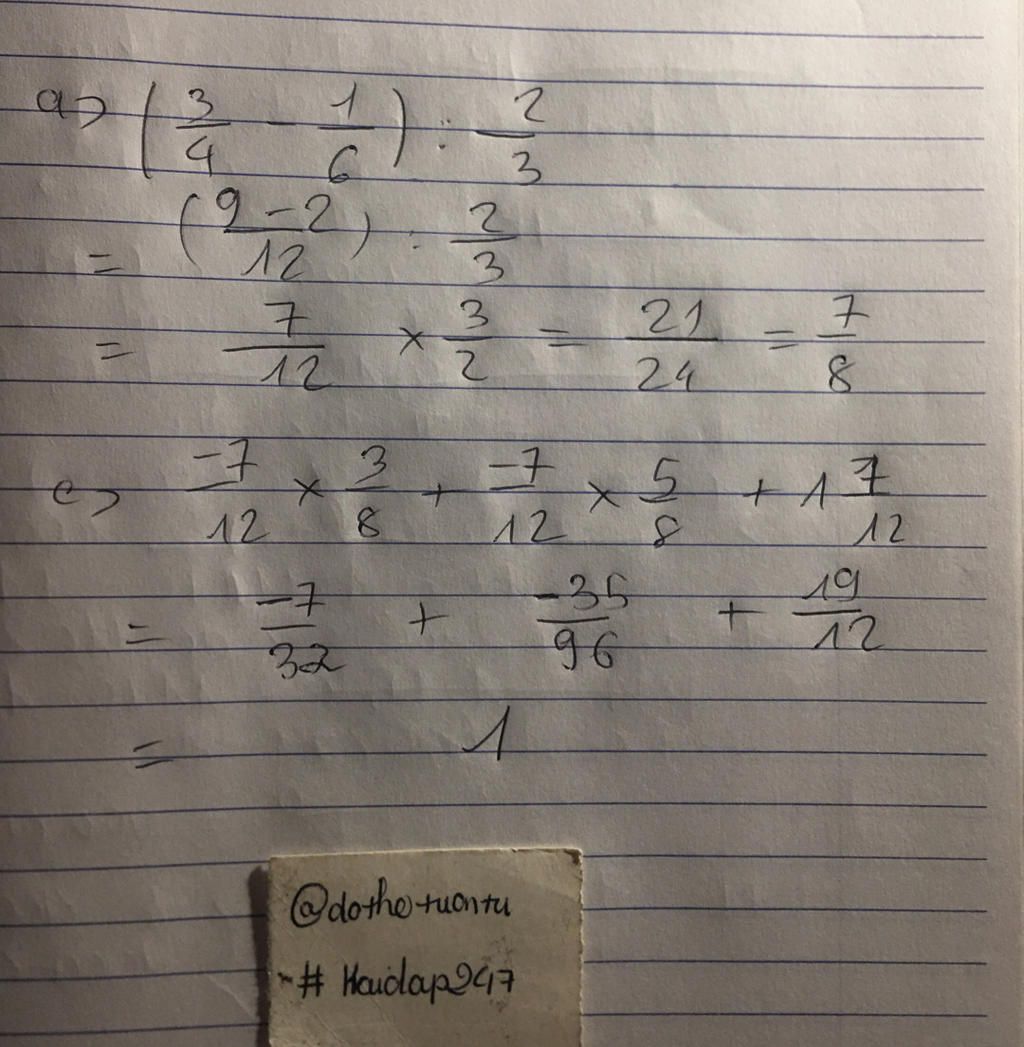 a> (3/4 - 1/6) : 2/3
= (9-2/12) : 2/3
= 7/12 × 3/2 = 21/24 = 7/8
c> -7/12 × 3/8 + -7/12 × 5/8 + 1 7/12
= -7/32 + -35/96 + 19/12
= 1
@dothetuantu
# Hoidap247